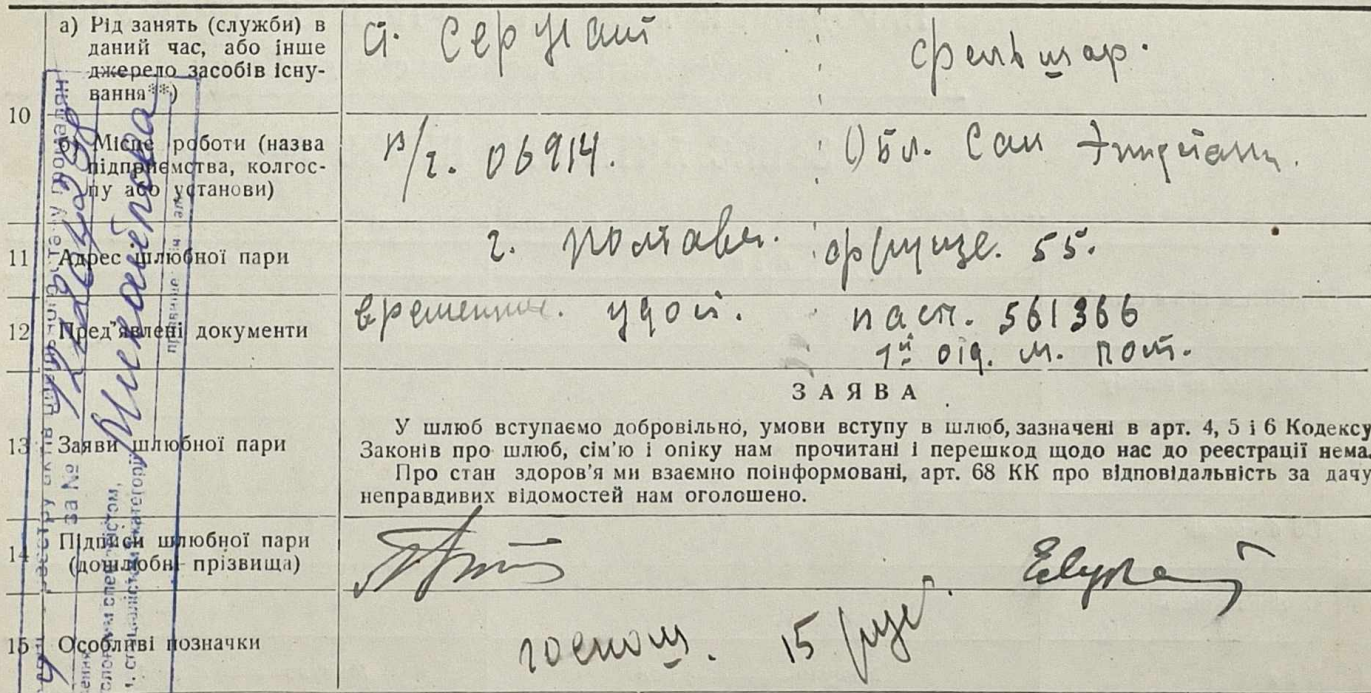 а) Рід занять (служби) в
даний час, або інше
джерело засобів існу-
вання**)
ст. Сержант
фельдшар.
10
б) Місце роботи (назва
підприємства, колгос-
пу або установи)
в/ч. 06914.
Обл. Сан
11 Адрес шлюбної пари
г. Полтава.
Фрунзе. 55.
12 Пред'явлені документи
временн. удост.
пасп. 561366
1й від. м. Полт.
ЗАЯВА
13 Заяви шлюбної пари
У шлюб вступаємо добровільно, умови вступу в шлюб, зазначені в арт. 4, 5 і 6 Кодексу
Законів про шлюб, сім'ю і опіку нам прочитані і перешкод щодо нас до реєстрації нема.
Про стан здоров'я ми взаємно поінформовані, арт. 68 КК про відповідальність за дачу
неправдивих відомостей нам оголошено.
14 Підписи шлюбної пари
(дошлюбні прізвища)
15 Особливі позначки
госпош. 15 руб.
за №